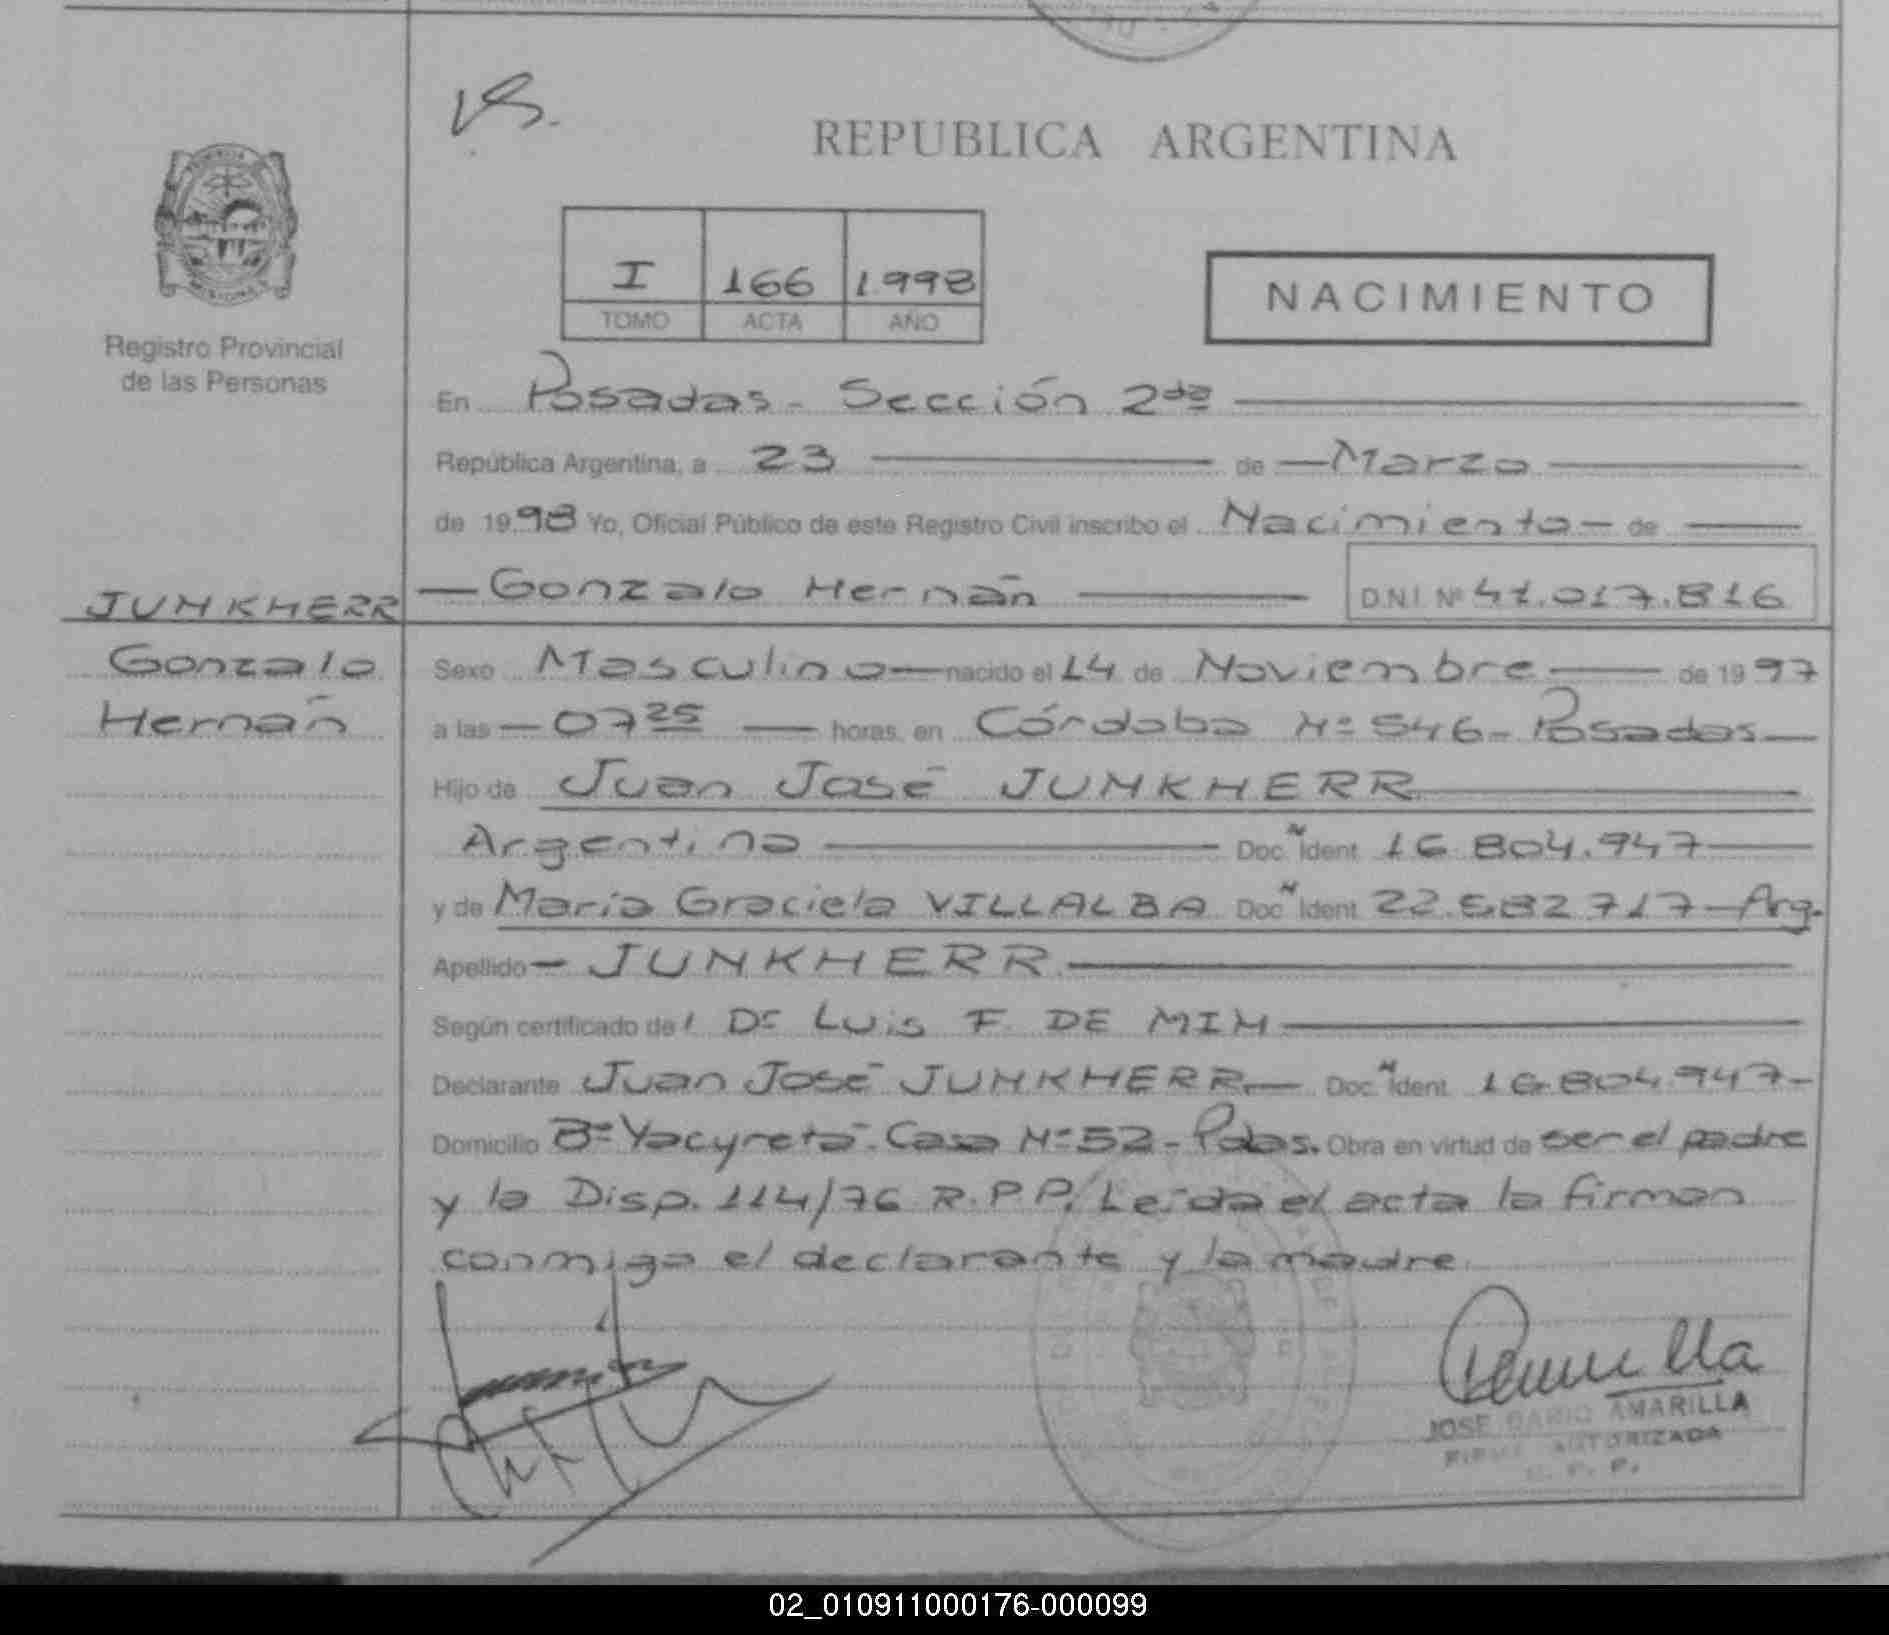 VS.
REPUBLICA ARGENTINA
I 166 1998
TOMO ACTA AÑO
NACIMIENTO
Registro Provincial
de las Personas
En Posadas - Sección 2da
República Argentina, a 23 de Marzo
de 1998 Yo, Oficial Público de este Registro Civil inscribo el Nacimiento de
JUNKHERR Gonzalo Hernán D.N.I. Nº 41.017.816
Gonzalo
Hernán
Sexo Masculino nacido el 14 de Noviembre de 1997
a las 07 25 horas, en Córdoba Nº 546 - Posadas
Hijo de Juan José JUNKHERR
Argentina Doc. N Ident 16.804.947
y de María Graciela VILLALBA Doc. N Ident 22.682.717 - Arg.
Apellido JUNKHERR
Según certificado del Dr Luis F. DE MIN
Declarante Juan José JUNKHERR Doc. N Ident. 16.804.947
Domicilio Bº Yacyretá - Casa Nº 52 - Pdas. Obra en virtud de ser el padre
y la Disp. 114/76 R.P.P. Leída el acta la firman
conmigo el declarante y la madre
JOSE DARIO AMARILLA
FIRMA AUTORIZADA
R. P. P.
02_010911000176-000099